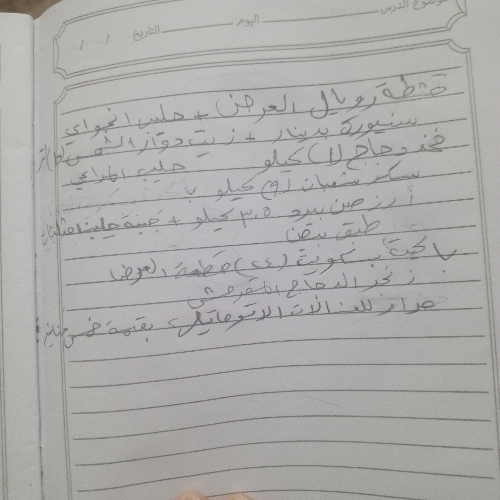 موضوع الدرس اليوم التاريخ / /
قشطة رويال العرض + حليب انجواي
سنيورة بدينار + زيت دوار الشمس
فخذ دجاج (1) كيلو حليب المراعي
سكر شعبان (9) كيلو ب
أرز صن بيرد 3.5 كيلو + جبنة
طبق بيض
باكيت بسكويت (24) قطعة العرض
زنجر الدجاج المقرمش
للغسالات الاتوماتيك بقيمة خمس دنانير